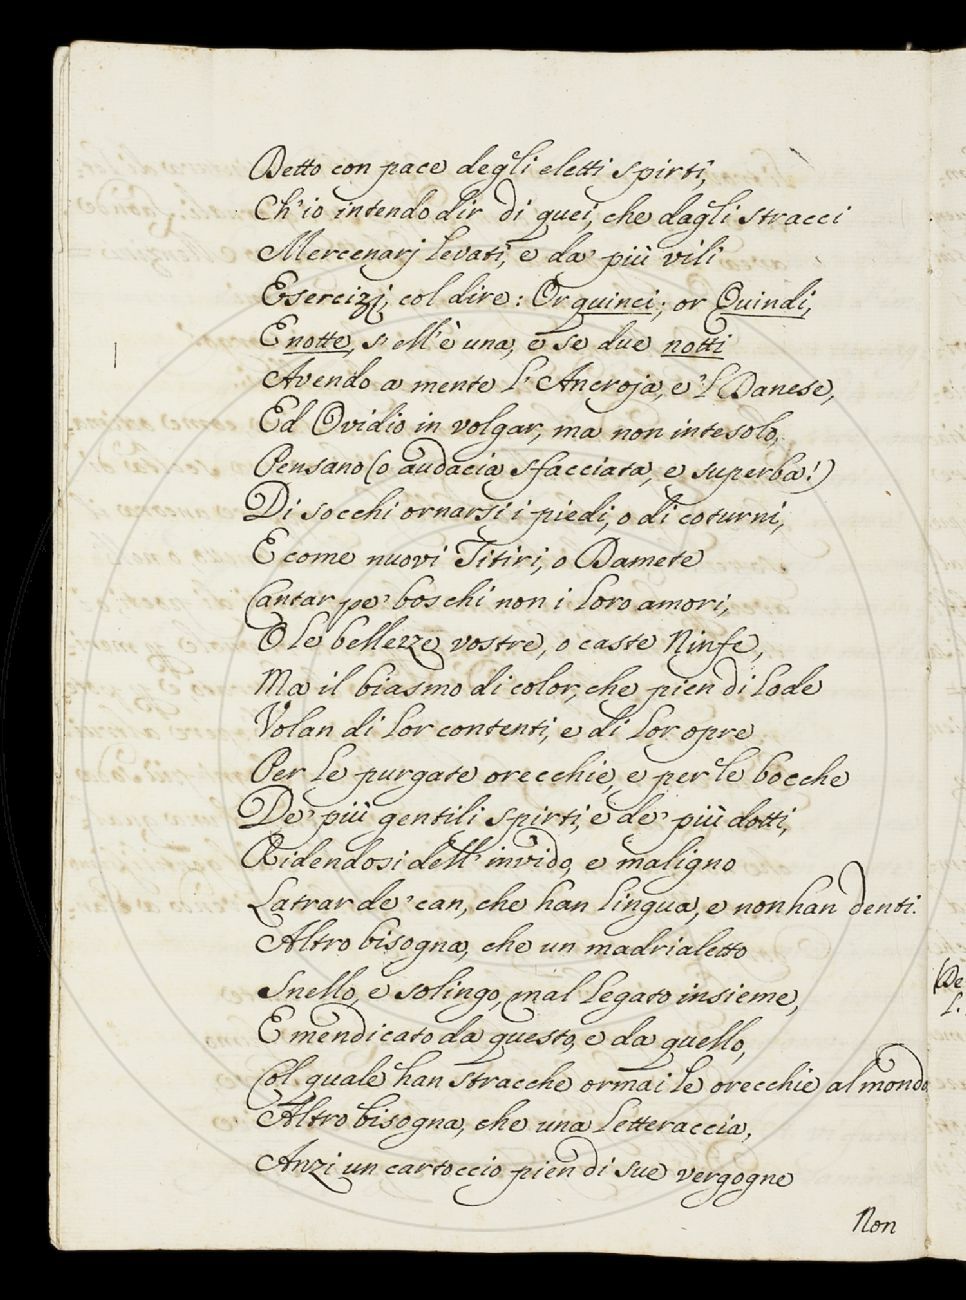 Detto con pace degli eletti spirti,
Ch'io intendo dir di quei, che dagli stracci
Mercenarj levati, e da' più vili
Esercizj, col dire: Or quinci, or Quindi,
E notte, s'ell'è una, e se due notti
Avendo a mente l'Ancroja, e 'l Danese,
Ed Ovidio in volgar, ma non inteso lo,
Pensano (o audacia sfacciata, e superba!)
Di socchi ornarsi i piedi, o di coturni,
E come nuovi Titiri, o Damete
Cantar pe' boschi non i loro amori,
O le bellezze vostre, o caste Ninfe,
Ma il biasmo di color, che pien di lode
Volan di lor contenti, e di lor opre
Per le purgate orecchie, e per le bocche
De' più gentili spirti, e de' più dotti,
Ridendosi dell'invido, e maligno
Latrar de' can, che han lingua, e non han denti.
Altro bisogna, che un madrialetto
Snello, e solingo, mal legato insieme,
E mendicato da questo, e da quello,
Col quale han stracche ormai le orecchie al mondo
Altro bisogna, che una letteraccia,
Anzi un cartoccio pien di sue vergogne
Non
(De
l.